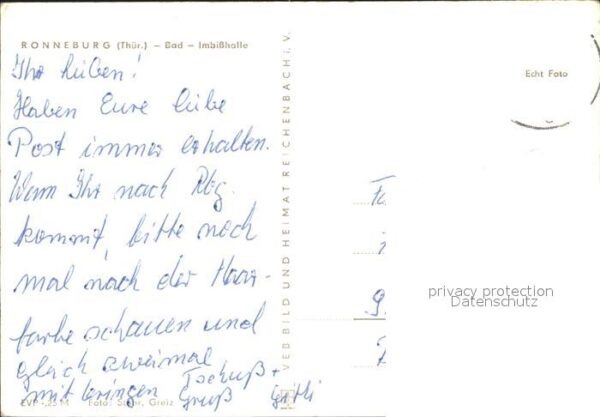 RONNEBURG (Thür.) – Bad – Imbißhalle
Ihr lieben!
Haben Eure liebe
Post immer erhalten.
Wenn Ihr nach Rbg.
kommt, bitte noch
mal nach der Haar-
farbe schauen und
gleich zweimal
mitbringen Tschuß +
Gruß
EVP -,25 M Foto: Greiz
VEB BILD UND HEIMAT REICHENBACH i. V.
Echt Foto
privacy protection
Datenschutz